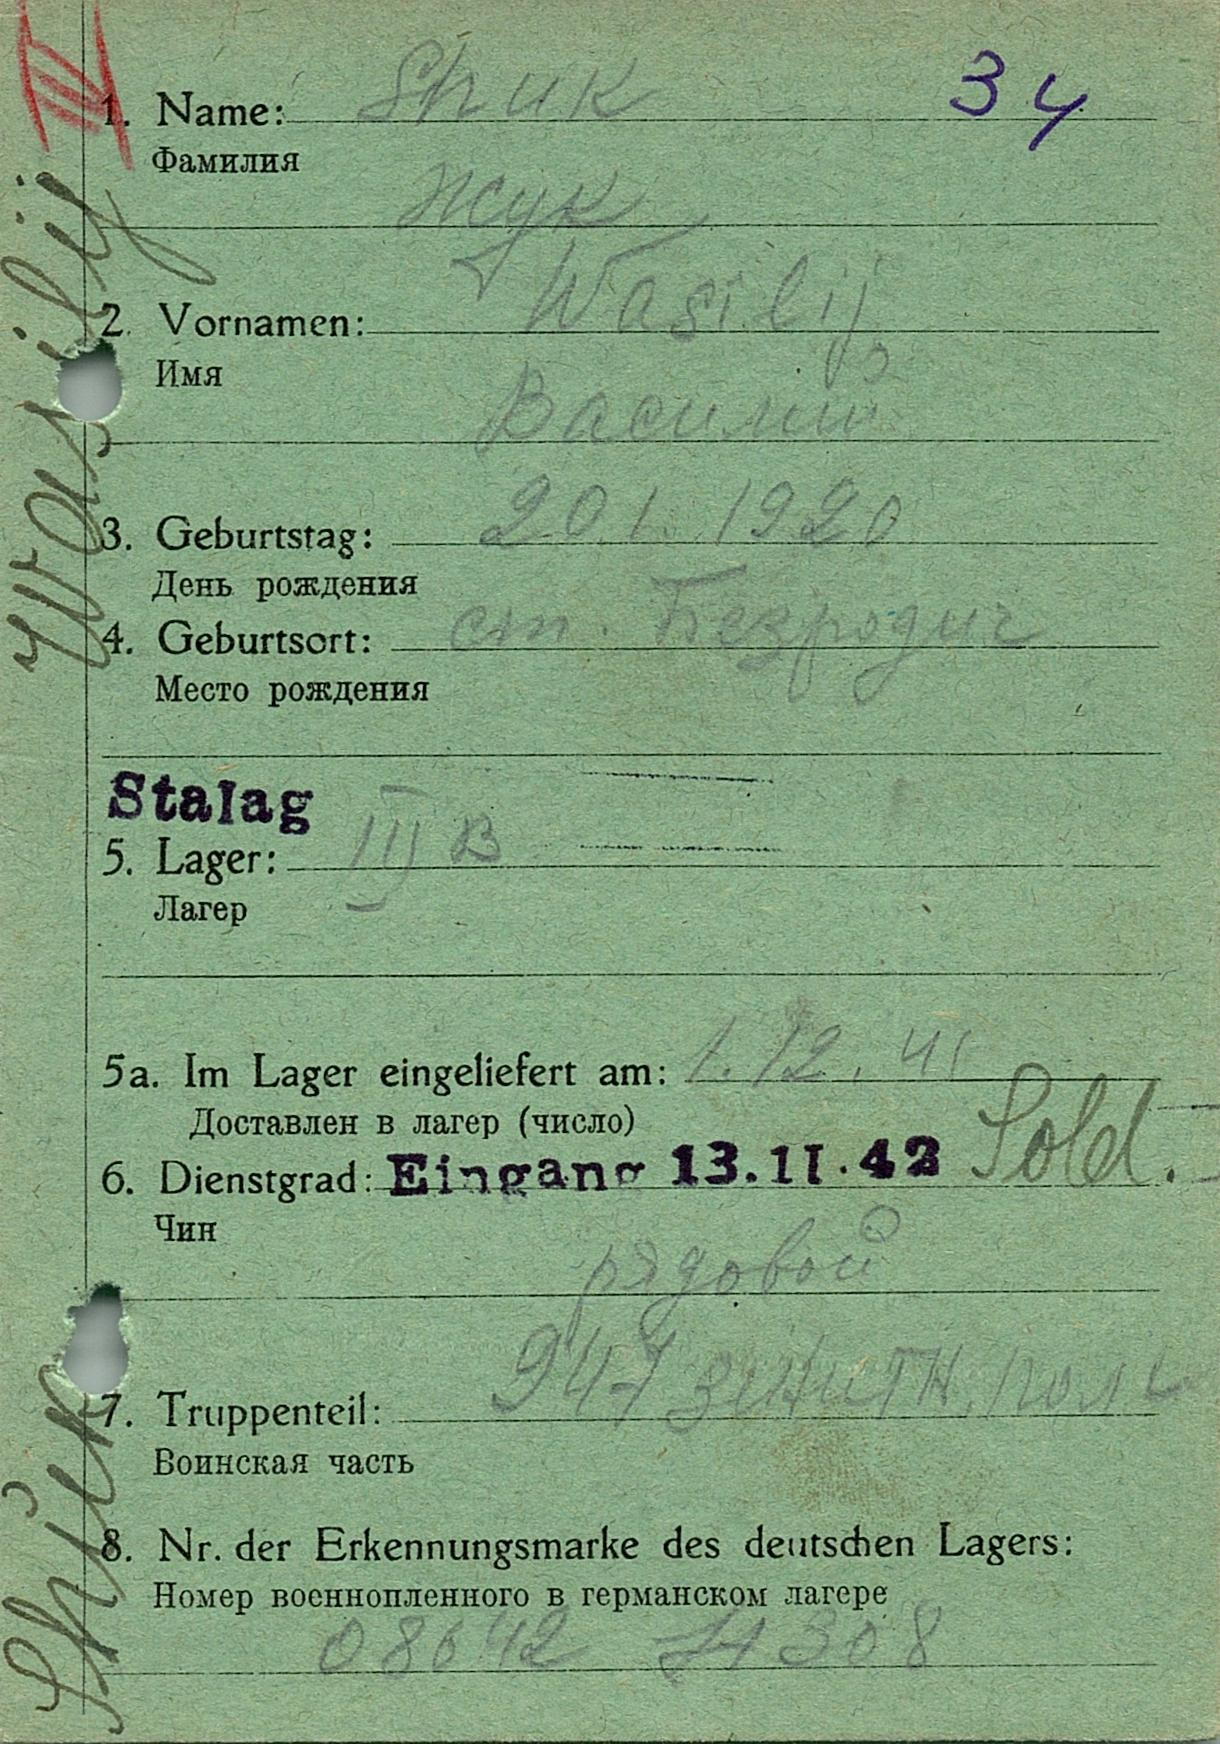 III
34
1. Name: Shuk
Фамилия
Жук
2. Vornamen: Wasilij
Имя
Василий
3. Geburtstag: 20.1.1920
День рождения
4. Geburtsort: ст. Безродич
Место рождения
Stalag
5. Lager: III B
Лагер
5a. Im Lager eingeliefert am: 1.12.41
Доставлен в лагер (число)
6. Dienstgrad: Eingang 13.II.42 Sold.
Чин
рядовой
7. Truppenteil: 947 зенитн.
Воинская часть
8. Nr. der Erkennungsmarke des deutschen Lagers:
Номер военнопленного в германском лагере
08642 308
Shuk Wasilij